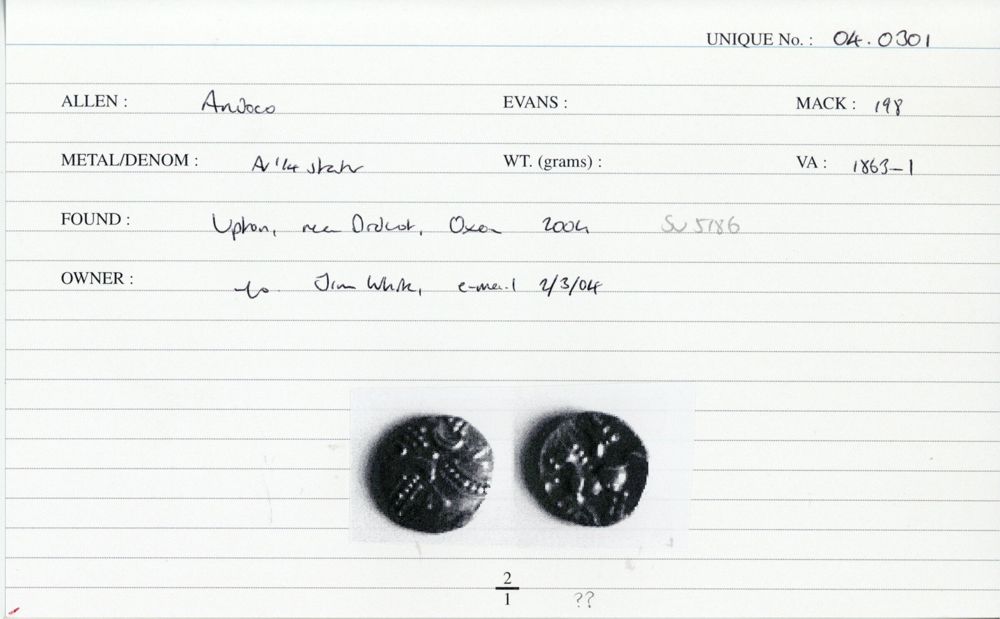 UNIQUE No. : 04.0301
ALLEN : Andoco EVANS : MACK : 198
METAL/DENOM : AV 1/4 stater WT. (grams) : VA : 1863-1
FOUND : Upton, near Didcot, Oxon 2004 SU 5186
OWNER : Jim White, e-mail 2/3/04
2
1 ??